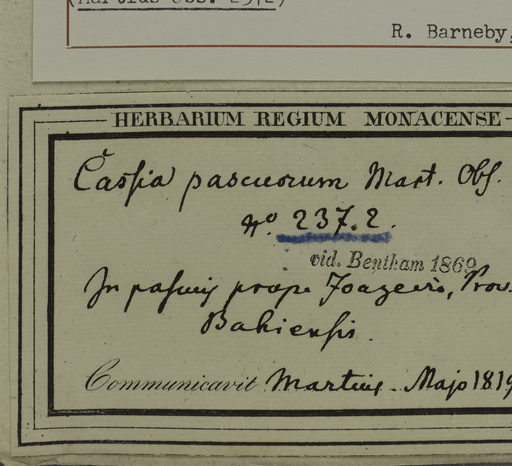 (Martius Obs. 2372)
R. Barneby,
HERBARIUM REGIUM MONACENSE
Cassia pascuorum Mart. Obs.
No. 237.2.
vid. Bentham 1869
In pascuis prope Joazeiro, Prov.
Bahiensis.
Communicavit Martius. Majo 1819